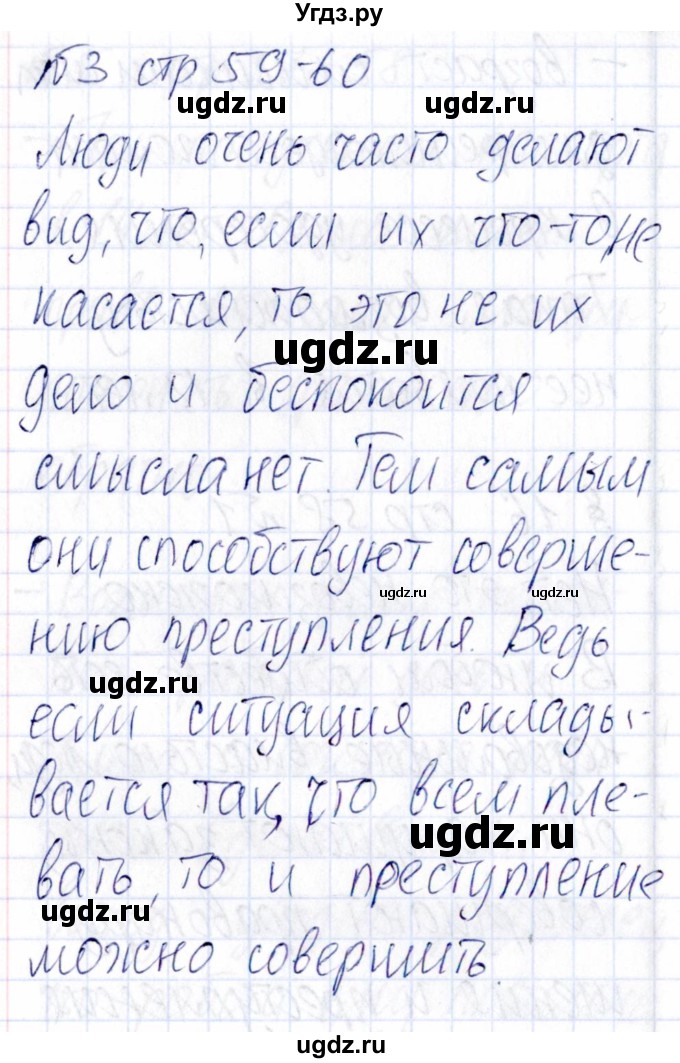 Угдз.ру
№3 стр 59-60
ugdz.ru ugdz.ru
Люди очень часто делают
вид, что, если их что-то не
касается, то это не их
ugdz.ru
дело и беспокоится
смысла нет. Тем самым
они способствуют соверше-
ugdz.ru ugdz.ru
нию преступления. Ведь
ugdz.ru
если ситуация склады-
вается так, что всем пле-
ugdz.ru
вать, то и преступление
ugdz.ru
можно совершить.
ugdz.ru